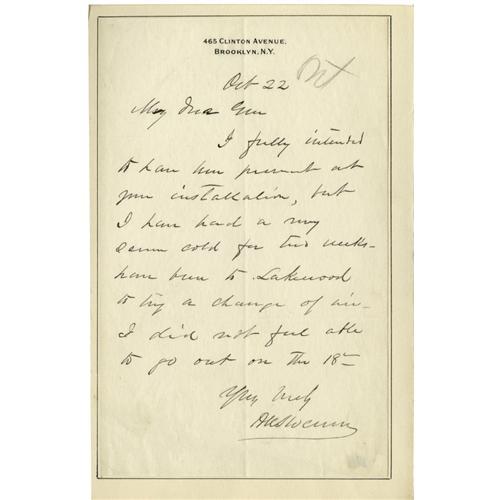 465 CLINTON AVENUE.
BROOKLYN, N.Y.
Oct 22
My dear Gen
I fully intended
to have been present at
your installation, but
I have had a very
severe cold for two weeks-
have been to Lakewood
to try a change of air-
I did not feel able
to go out on the 18th
Yours truly